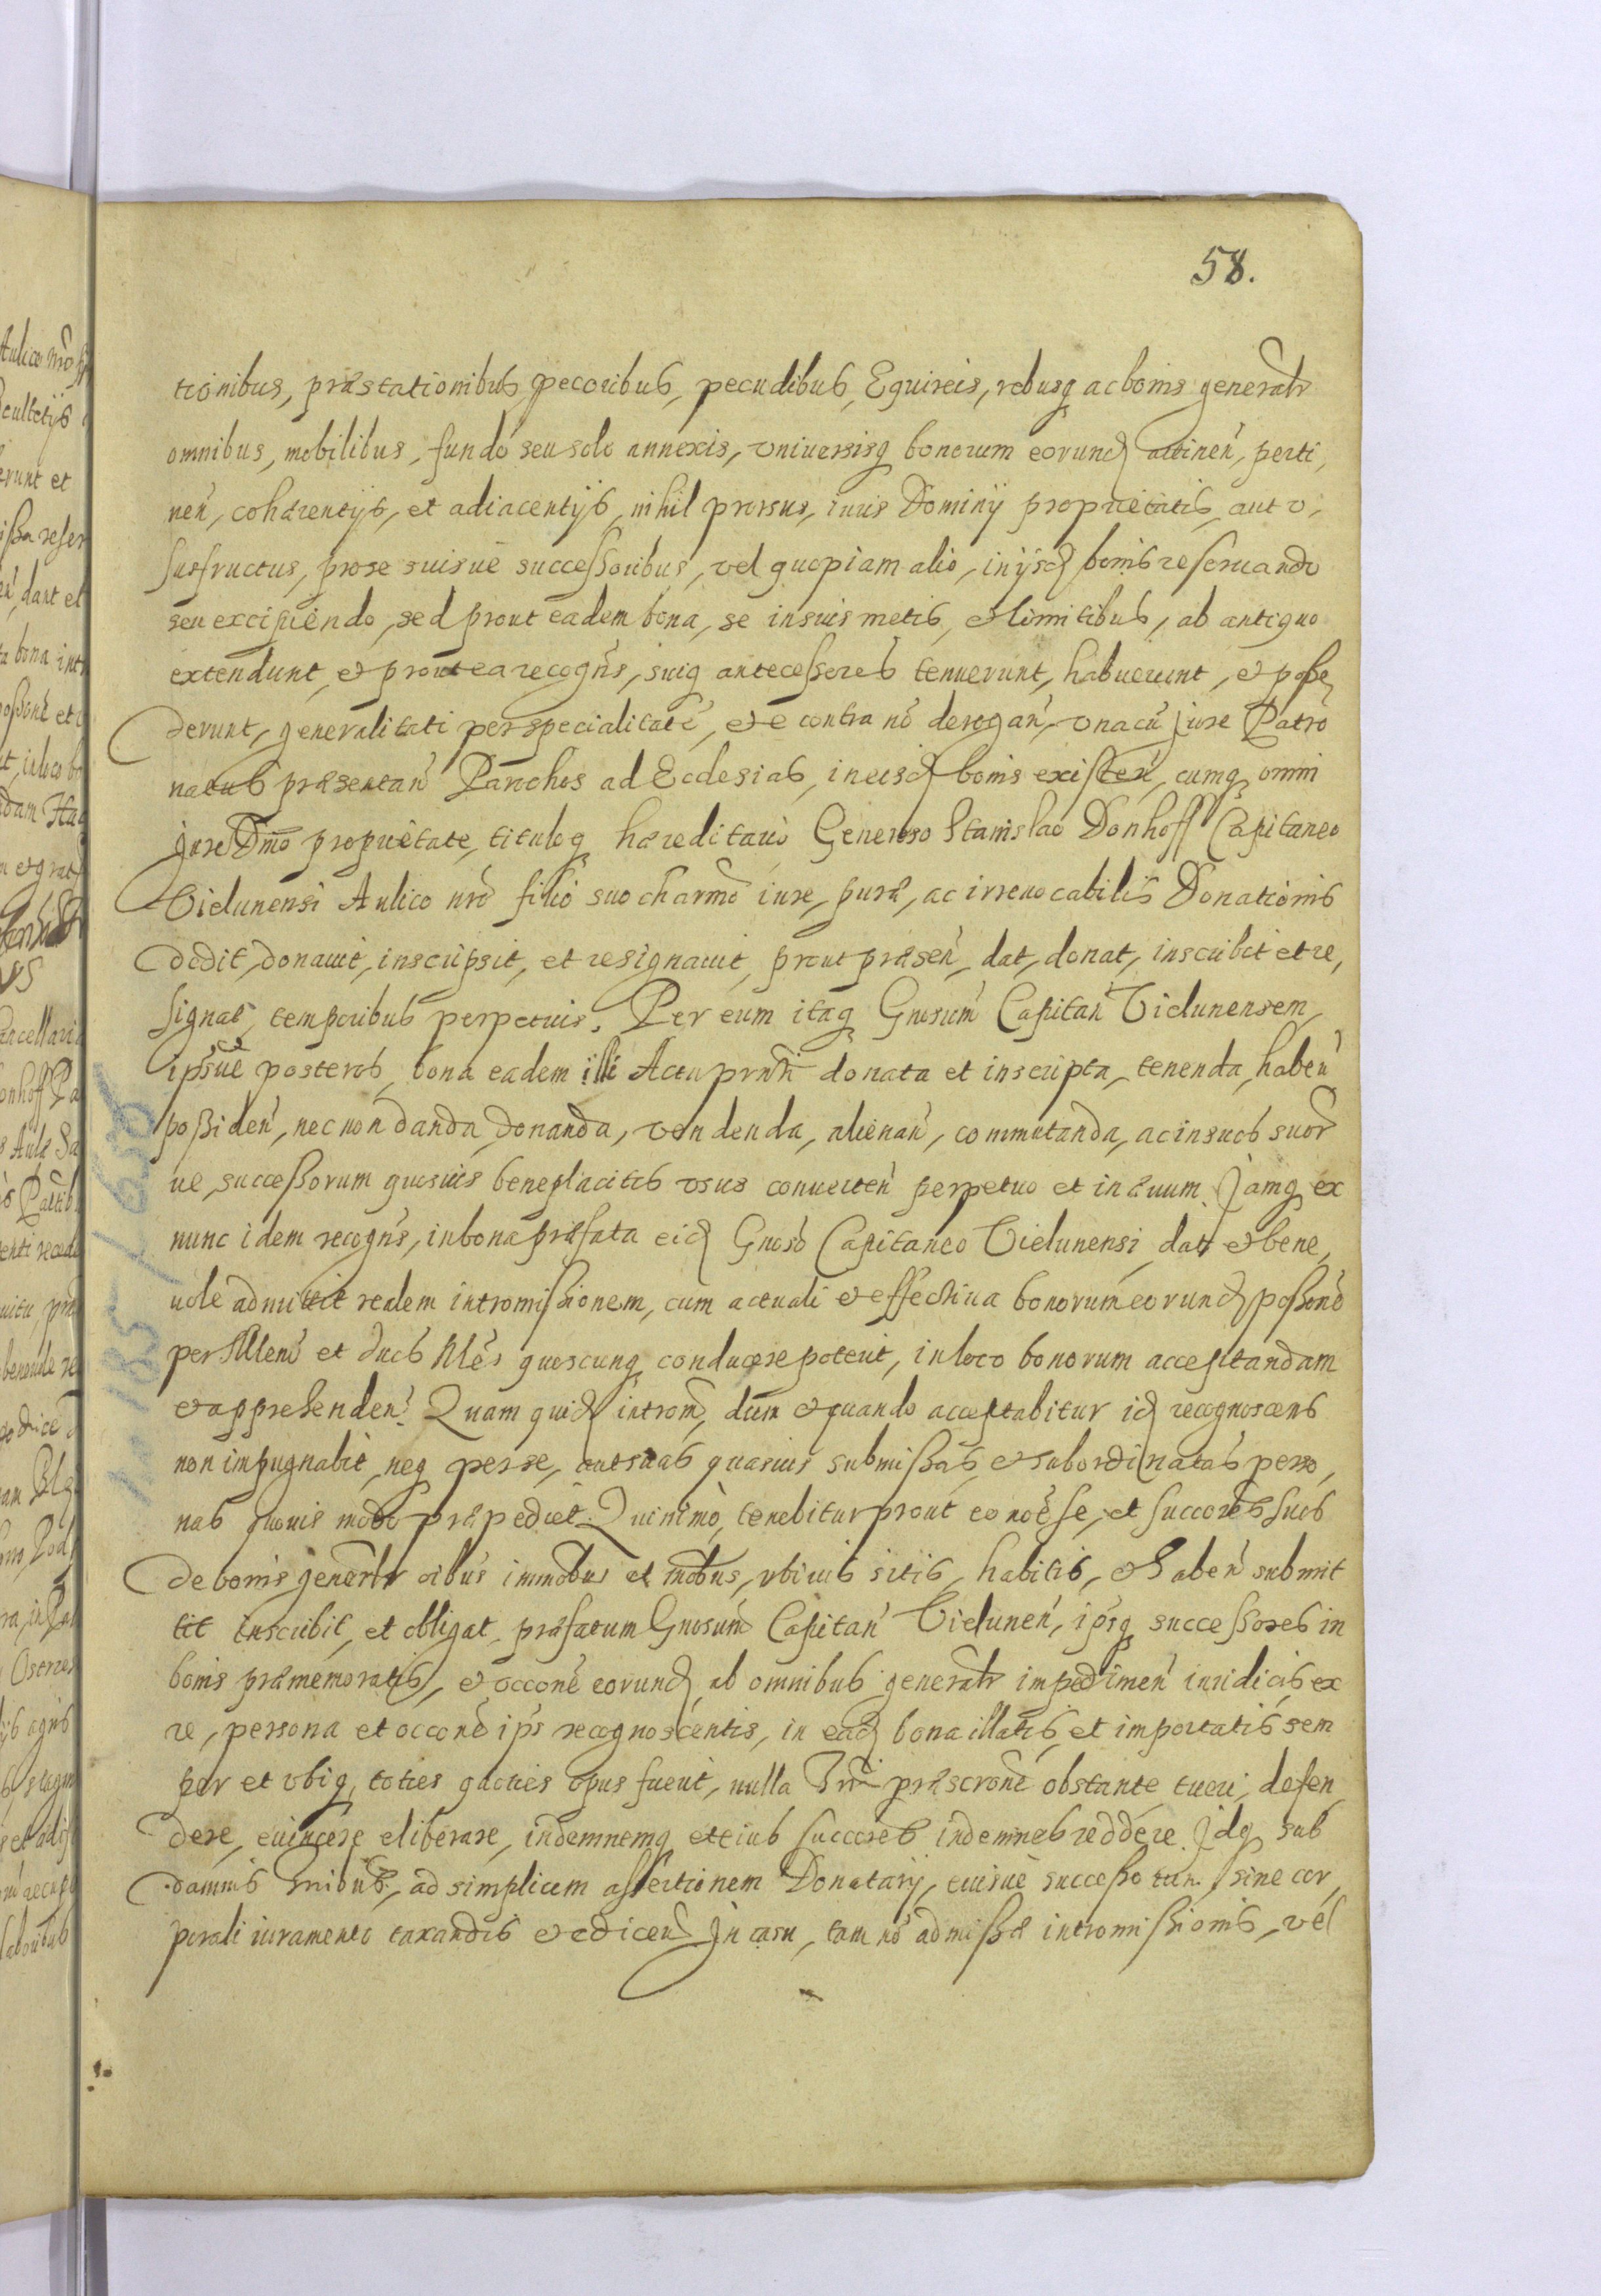 58.
tionibus, præstationibus, pecoribus, pecudibus, Equireis, rebusq ac bonis generalr
omnibus, mobilibus, fundo seu solo annexis, vniuersisq bonorum eorund attinen, perti,
nen, cohærentijs, et adiacentijs, nihil prorsus, iuris Dominij proprietatis, aut v,
susfructus, pro se suisue successoribus, vel quopiam alio, in ijsd bonis reseruando
seu excipiendo, sed prout eadem bona, se in suis metis, et limitibus, ab antiquo
extendunt, et prout ea recogns, suiq antecessores tenuerunt, habuerunt, et posse,
derunt, generalitati per specialitate, et e contra no derogan, vna cu jure Patro
natus præsentan Parochos ad Ecclesias, in eisd bonis existen, cumq omni
jure Dmo proprietate, tituloq hæreditario Generoso Stanislao Donhoff Capitaneo
Vielunensi Aulico nro filio suo charmo iure, puræ, ac irreuocabilis Donationis
dedit, donauit, inscripsit, et resignauit, prout præsen, dat, donat, inscribit et re,
signat, temporibus perpetuis. Per eum itaq Gnosum Capitan Vielunensem,
ipsiusue posteros, bona eadem illi Actu prnti donata et inscripta, tenenda, haben
possiden, nec non danda, donanda, vendenda, alienan, commutanda, ac in suos suor
ue, successorum quosuis beneplacitos vsus conuerten perpetuo et in æuum. Jamq ex
nunc idem recogns, in bona præfata eid Gnoso Capitaneo Vielunensi, dat et bene,
uole admittit realem intromissionem, cum actuali et effectiua bonorum eorund possone
per Mlem et duos Nles quoscunq conducere poterit, in loco bonorum acceptandam
et apprehenden. Quam quid introm, dum et quando acceptabitur id recognoscens
non impugnabit, neq per se, aut suas quasuis submissas, et subordinatas perso,
nas quouis modo præpediet. Quinimo, tenebitur prout eo noe se, et succores suos
de bonis generalr oibus immobus et mobus, vbiuis sitis, habitis, et haben submit
tit inscribit, et obligat, præfatum Gnosum Capitan Vielunen, ipsq successores in
bonis præmemoratis, et occone eorund, ab omnibus generalr impedimen iuridicis ex
re, persona et occone ips recognoscentis, in ead bona illatis, et importatis sem
per et vbiq, toties quoties opus fuerit, nulla præscrone obstante tueri, defen,
dere, euincere eliberare, indemnemq et eius succores indemnes reddere. Idq sub
damnis, ad simplicem assertionem Donatarij, eiusue successorum, sine cor,
porali iuramento taxandis et edicen. In casu, tam no admissæ intromissionis, vel